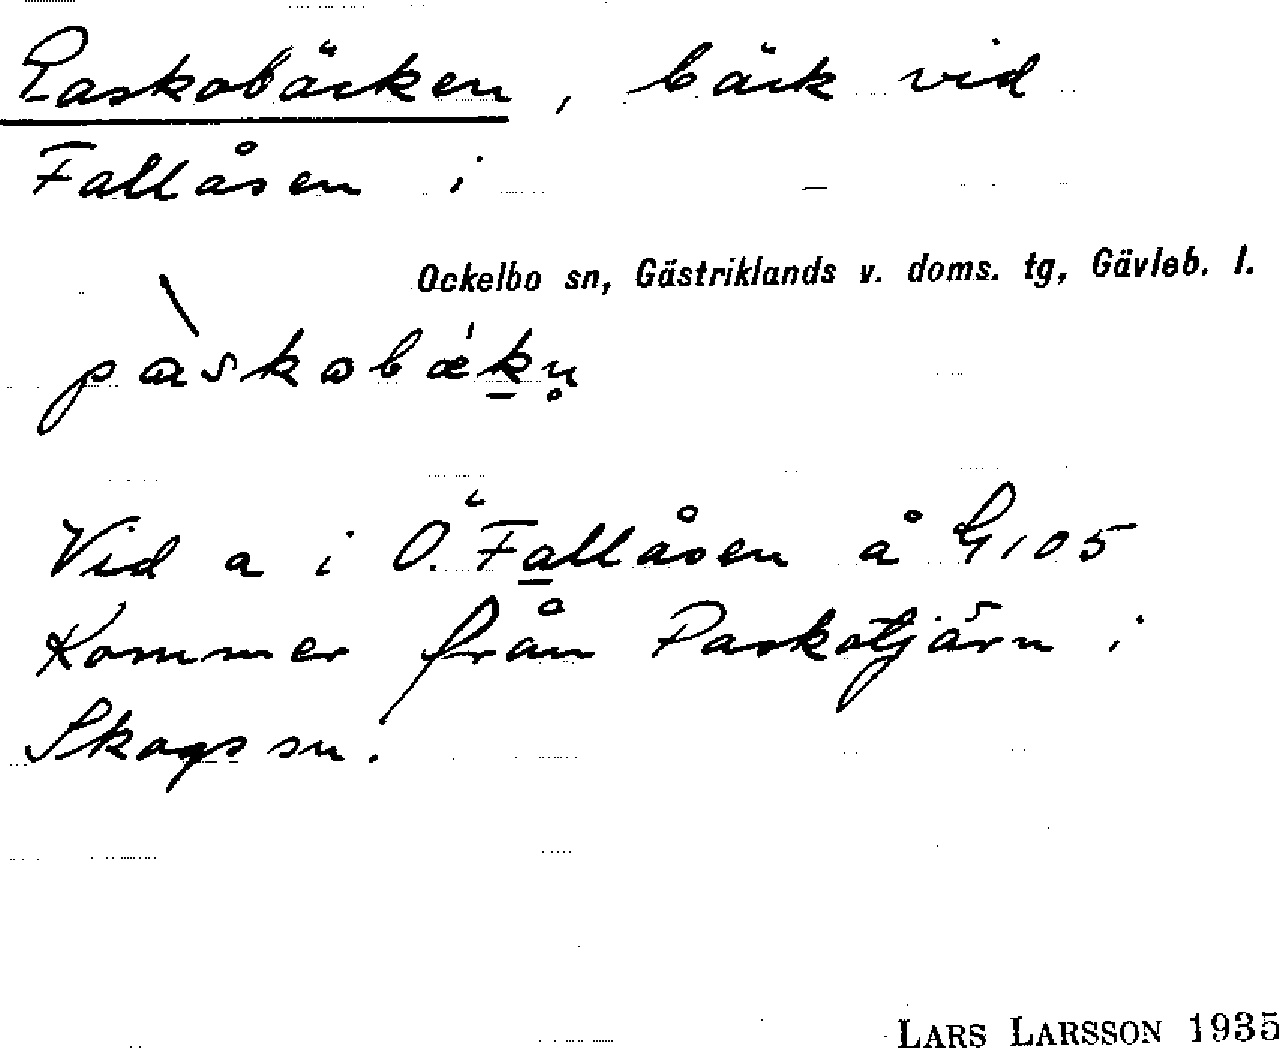 Paskobäcken, bäck vid
Fallåsen i
Ockelbo sn, Gästriklands v. doms. tg, Gävleb. l.
pàskobǽkn̥
Vid a i Ö. Fallåsen å G105
Kommer från Paskotjärn i
Skogs sn.
LARS LARSSON 1935